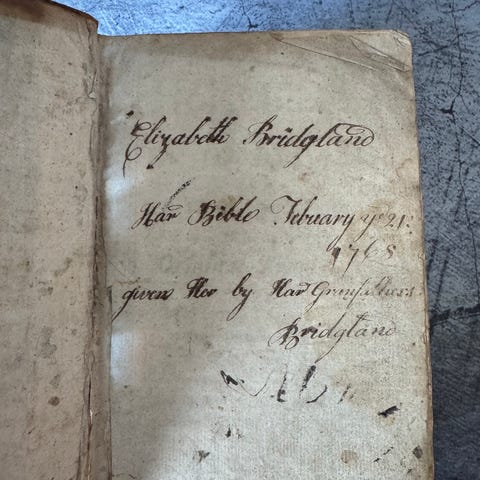 Elizabeth Bridgland
Har Bible Febuary ye 21:
1768
given Her by Har Granfathers
Bridgland